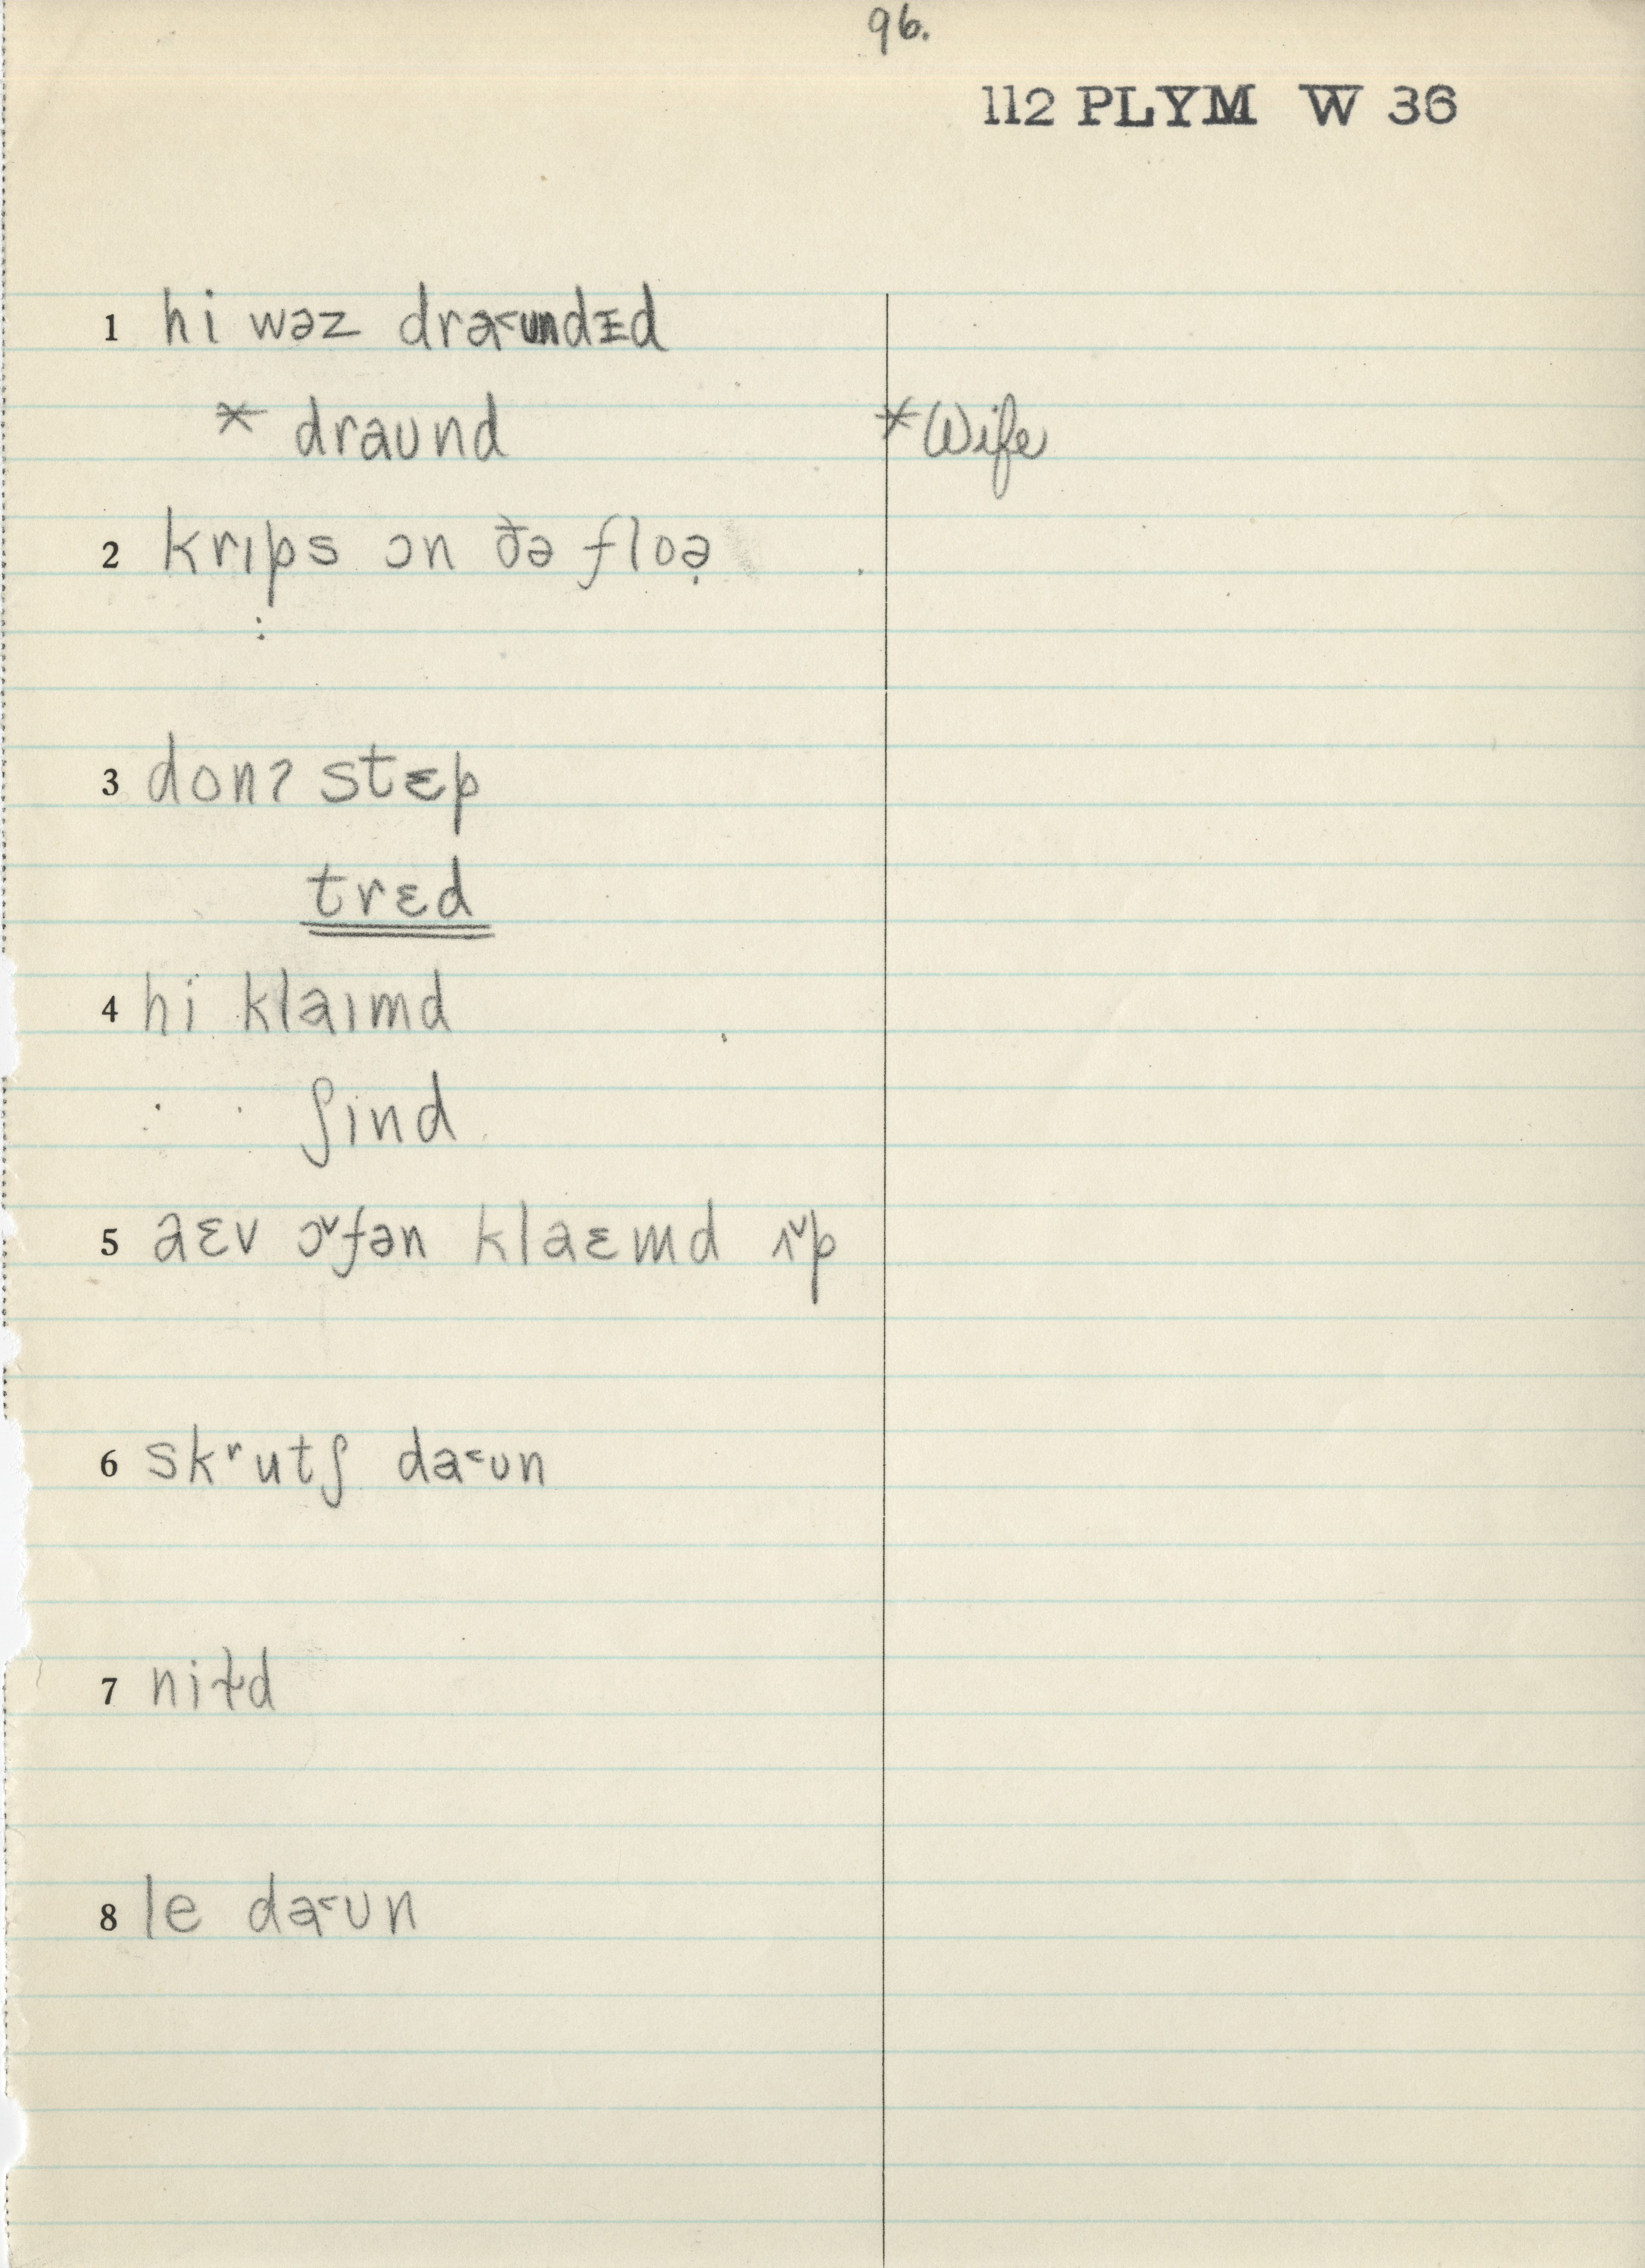 96.
112 PLYM W 36
1 hi wəz dra˂ʊndɪd
* draʊnd * Wife
2 krɪps ɔn ðə floə̣
3 donʔ stɛp
trɛd
4 hi klaɪmd
ʃɪnd
5 aɛv ɔ˅fən klaɛmd ʌ˅p
6 skʳutʃ da˂ʊn
7 niɫd
8 le da˂ʊn